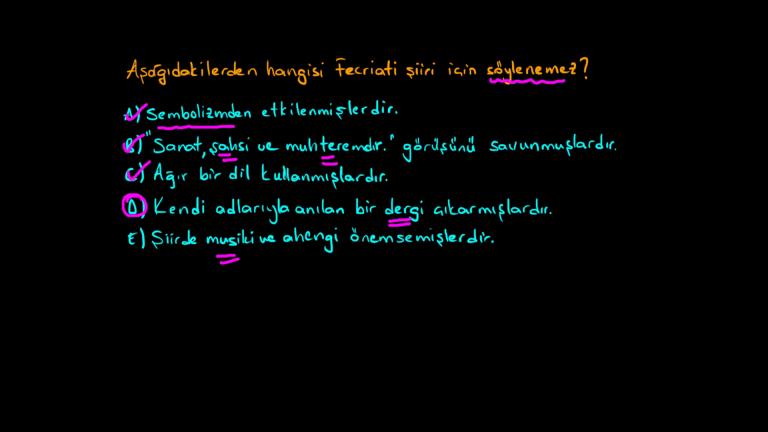 Aşağıdakilerden hangisi Fecriati şiiri için söylenemez?
A) Sembolizmden etkilenmişlerdir.
B) "Sanat, şahsi ve muhteremdir." görüşünü savunmuşlardır.
C) Ağır bir dil kullanmışlardır.
D) Kendi adlarıyla anılan bir dergi çıkarmışlardır.
E) Şiirde musiki ve ahengi önemsemişlerdir.